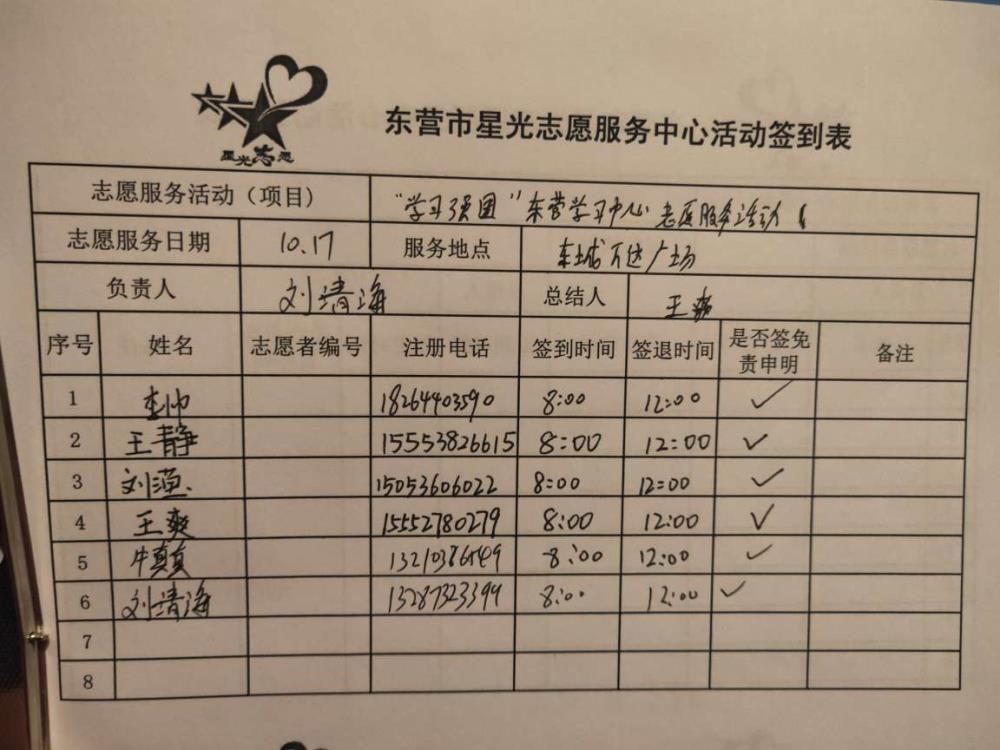 星光志愿
东营市星光志愿服务中心活动签到表
志愿服务活动（项目） “学习强国”东营学习中心志愿服务活动
志愿服务日期 10.17 服务地点 东城万达广场
负责人 刘清海 总结人 王爽
序号 姓名 志愿者编号 注册电话 签到时间 签退时间 是否签免责申明 备注
1 18264403590 8:00 12:00 ✓
2 王静 15553826615 8:00 12:00 ✓
3 刘 15053606022 8:00 12:00 ✓
4 王爽 15552780279 8:00 12:00 ✓
5 牛真真 8:00 12:00 ✓
6 刘清海 13287323399 8:00 12:00 ✓
7
8